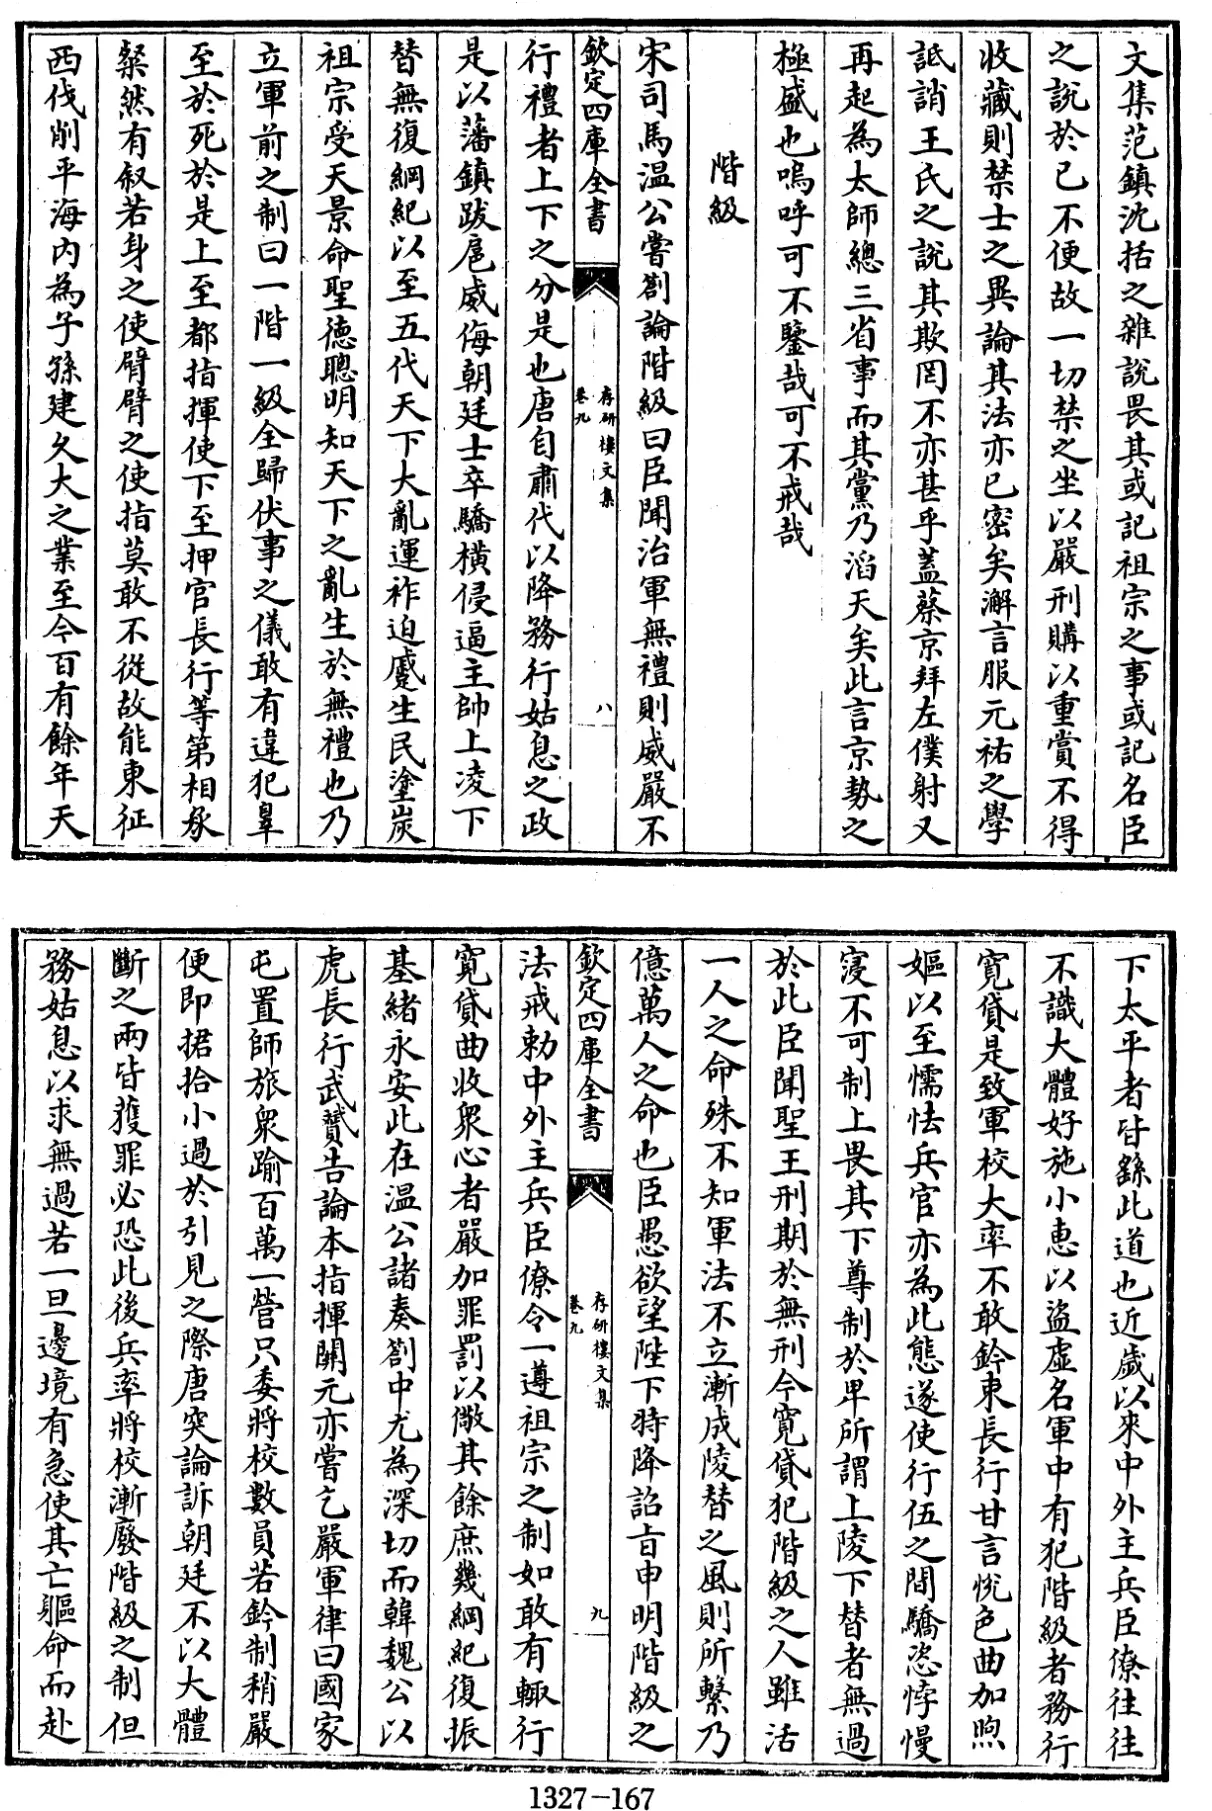 文集范鎮沈括之雜說畏其或記祖宗之事或記名臣
之說於已不便故一切禁之坐以嚴刑購以重賞不得
收藏則禁士之異論其法亦已密矣澥言服元祐之學
詆誚王氏之說其欺罔不亦甚乎蓋蔡京拜左僕射又
再起為太師總三省事而其黨乃滔天矣此言京勢之
極盛也嗚呼可不鑒哉可不戒哉
階級
宋司馬温公嘗劄論階級曰臣聞治軍無禮則威嚴不
欽定四庫全書
存研樓文集
卷九
八
行禮者上下之分是也唐自肅代以降務行姑息之政
是以藩鎮跋扈威侮朝廷士卒驕橫侵逼主帥上凌下
替無復綱紀以至五代天下大亂運祚迫蹙生民塗炭
祖宗受天景命聖德聰明知天下之亂生於無禮也乃
立軍前之制曰一階一級全歸伏事之儀敢有違犯辠
至於死於是上至都指揮使下至押官長行等第相承
粲然有叙若身之使臂臂之使指莫敢不從故能東征
西伐削平海内為子孫建久大之業至今百有餘年天
下太平者皆繇此道也近歲以來中外主兵臣僚往往
不識大體好施小惠以盜虛名軍中有犯階級者務行
寬貸是致軍校大率不敢鈐束長行甘言悅色曲加煦
嫗以至懦怯兵官亦為此態遂使行伍之間驕恣悖慢
寖不可制上畏其下尊制於卑所謂上陵下替者無過
於此臣聞聖王刑期於無刑今寬貸犯階級之人雖活
一人之命殊不知軍法不立漸成陵替之風則所繫乃
億萬人之命也臣愚欲望陛下特降詔㫖申明階級之
欽定四庫全書
存研樓文集
卷九
九
法戒勅中外主兵臣僚令一遵祖宗之制如敢有輒行
寬貸曲收衆心者嚴加罪罰以儆其餘庶幾綱紀復振
基緒永安此在温公諸奏劄中尤為深切而韓魏公以
虎長行武贇告論本指揮關元亦嘗乞嚴軍律曰國家
屯置師旅衆踰百萬一營只委將校數員若鈐制稍嚴
便即捃拾小過於引見之際唐突論訴朝廷不以大體
斷之兩皆獲罪必恐此後兵率將校漸廢階級之制但
務姑息以求無過若一旦邊境有急使其亡軀命而赴
1327-167